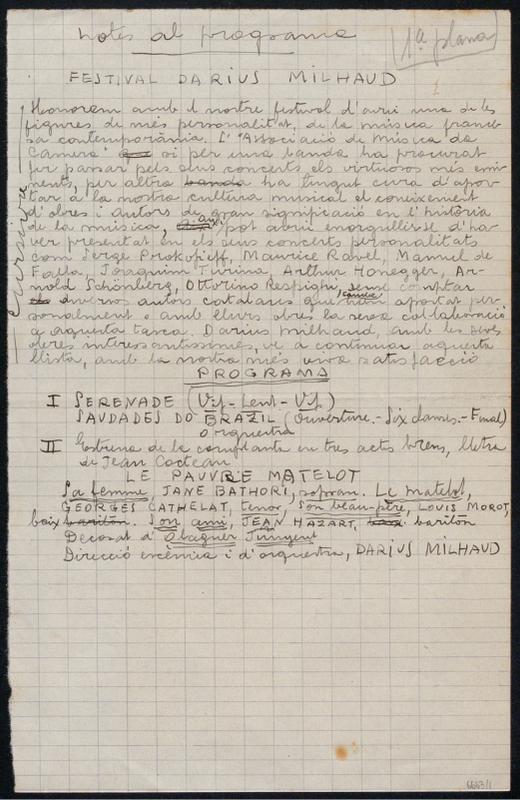 Notes al programa
(1ª plana)
FESTIVAL DARIUS MILHAUD
1
Cursiva
Honorem amb el nostre festival d'avui una de les
figures de més personalitat, de la música france-
sa contemporània. L'"Associació de Música da
Camera" si per una banda ha procurat
fer passar pels seus concerts els virtuosos més emi-
nents, per altra banda ha tingut cura d'apor-
tar a la nostra cultura musical el coneixement
d'obres i autors de gran significació en l'història
de la música, i així pot avui enorgullir-se d'ha-
ver presentat en els seus concerts personalitats
com Serge Prokofieff, Maurice Ravel, Manuel de
Falla, Joaquim Turina, Arthur Honegger, Ar-
nold Schönberg, Ottorino Respighi, sense comptar
diversos autors catalans que també han aportat per-
sonalment o amb llurs obres la seva col·laboració
a aquesta tasca. Darius Milhaud, amb les seves
obres interessantíssimes, ve a continuar aquesta
llista, amb la nostra més viva satisfacció
PROGRAMA
I SERENADE (Vif - Lent - Vif)
SAUDADES DO BRAZIL (Ouverture.- Six danses.- Final)
Orquestra
II Estrena de la complanta en tres actes breus, lletra
de Jean Cocteau
LE PAUVRE MATELOT
Sa femme, JANE BATHORI, sopran. Le matelot,
GEORGES CATHELAT, tenor, Son beau-père, LOUIS MOROT,
baix bariton. Son ami, JEAN HAZART, baix bariton
Decorat d'Oleguer Junyent
Direcció escènica i d'orquestra, DARIUS MILHAUD
6663/1